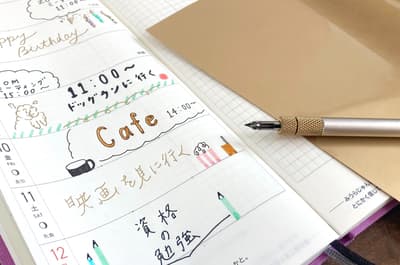 ppy Birthday
OM
ミーティング
15:00～
11:00～
ドッグランに行く
Cafe
14:00～
10
金
FRI
映画を見に行く
11
土
SAT
資格
の
勉強
12